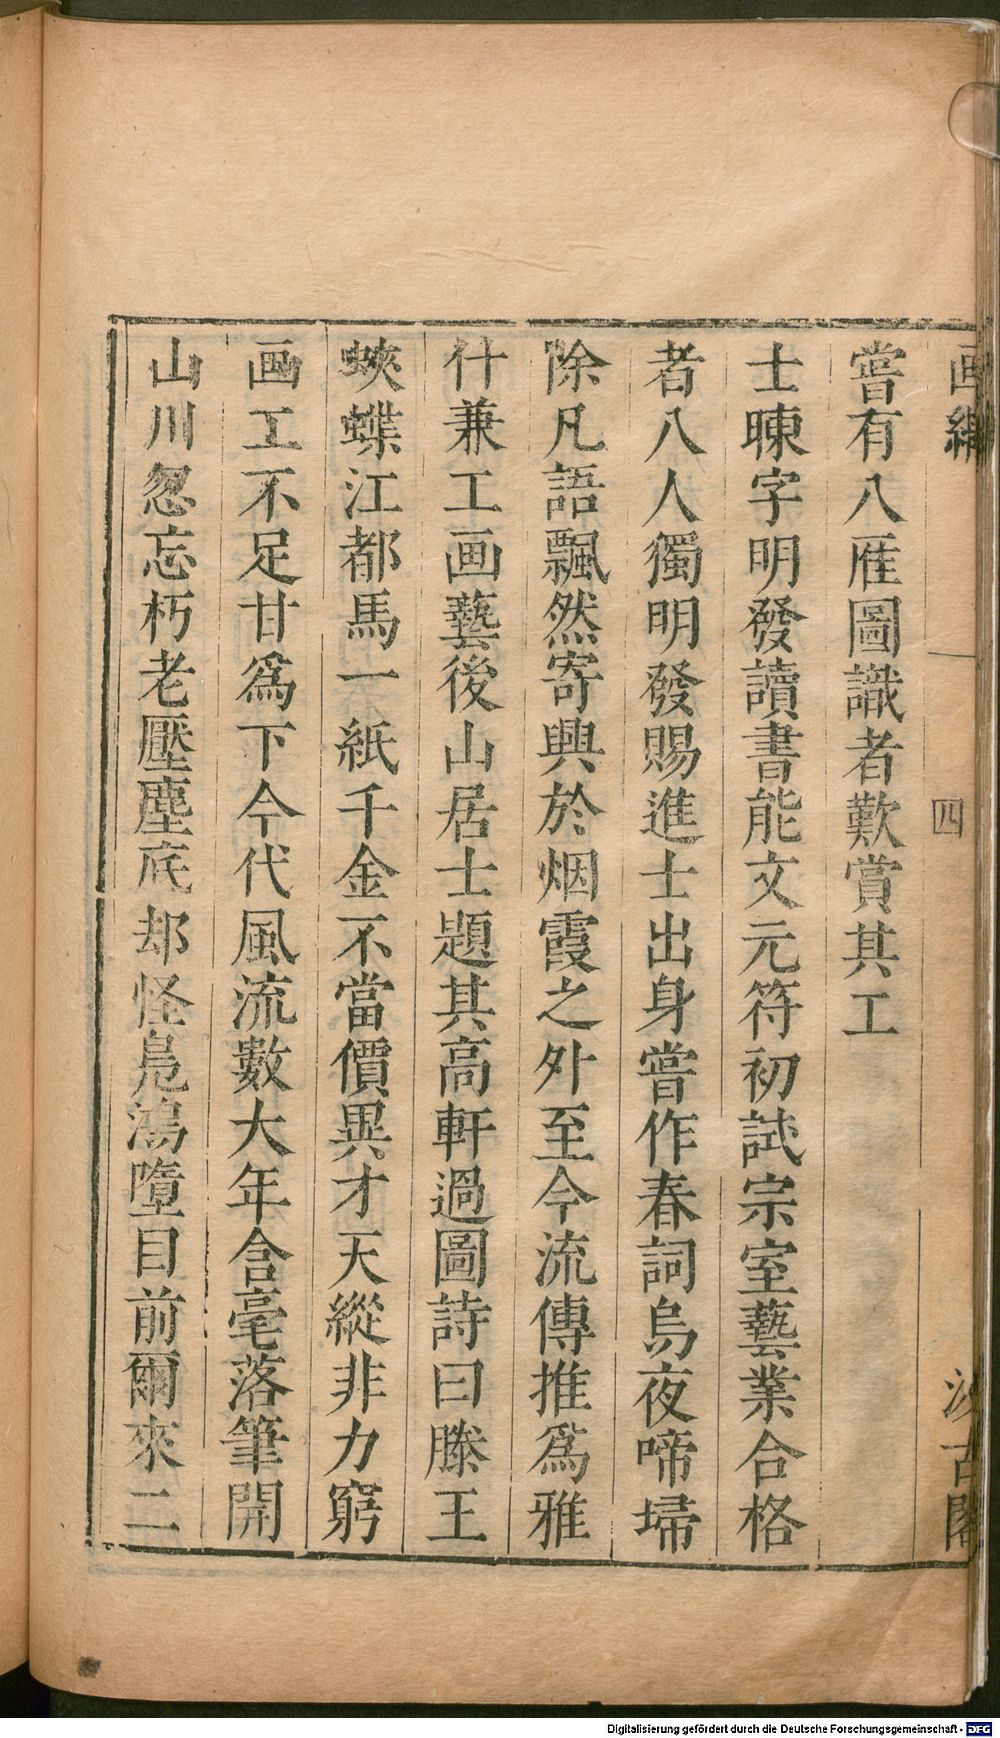 画繼
四
汲古閣
嘗有八雁圖識者歎賞其工
士暕字明發讀書能文元符初試宗室藝業合格
者八人獨明發賜進士出身嘗作春詞烏夜啼埽
除凡語飄然寄興於烟霞之外至今流傳推爲雅
什兼工画藝後山居士題其高軒過圖詩曰滕王
蛺蝶江都馬一紙千金不當價異才天縱非力窮
画工不足甘爲下今代風流數大年含毫落筆開
山川忽忘朽老壓塵底却怪鳧鴻墮目前爾來二
Digitalisierung gefördert durch die Deutsche Forschungsgemeinschaft - DFG